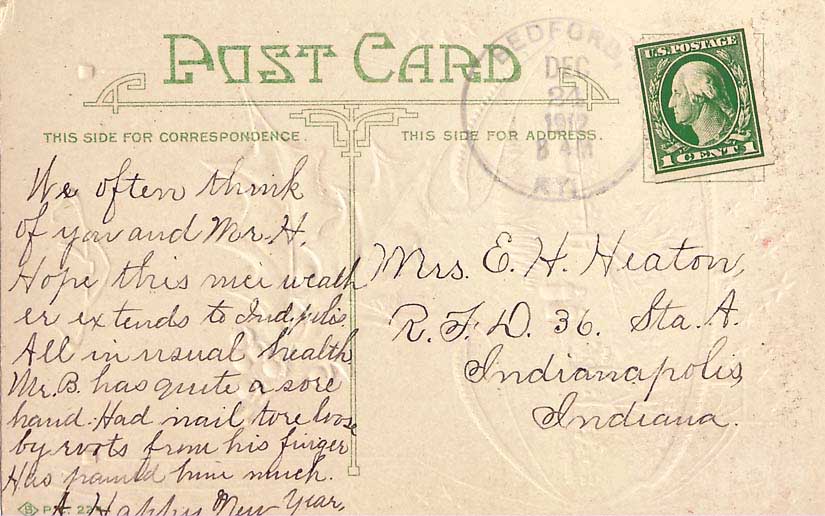 POST CARD
BEDFORD,
DEC
1912
8 AM
KY.
U.S. POSTAGE
1 CENT 1
THIS SIDE FOR CORRESPONDENCE.
THIS SIDE FOR ADDRESS.
We often think
of you and Mr. H.
Hope this nice weath
er extends to Ind.polis.
All in usual health
Mr. B. has quite a sore
hand. Had nail tore loose
by roots from his finger
Has pained him much.
A Happy New Year,
Mrs. E. H. Heaton,
R. F. D. 36. Sta. A.
Indianapolis,
Indiana.